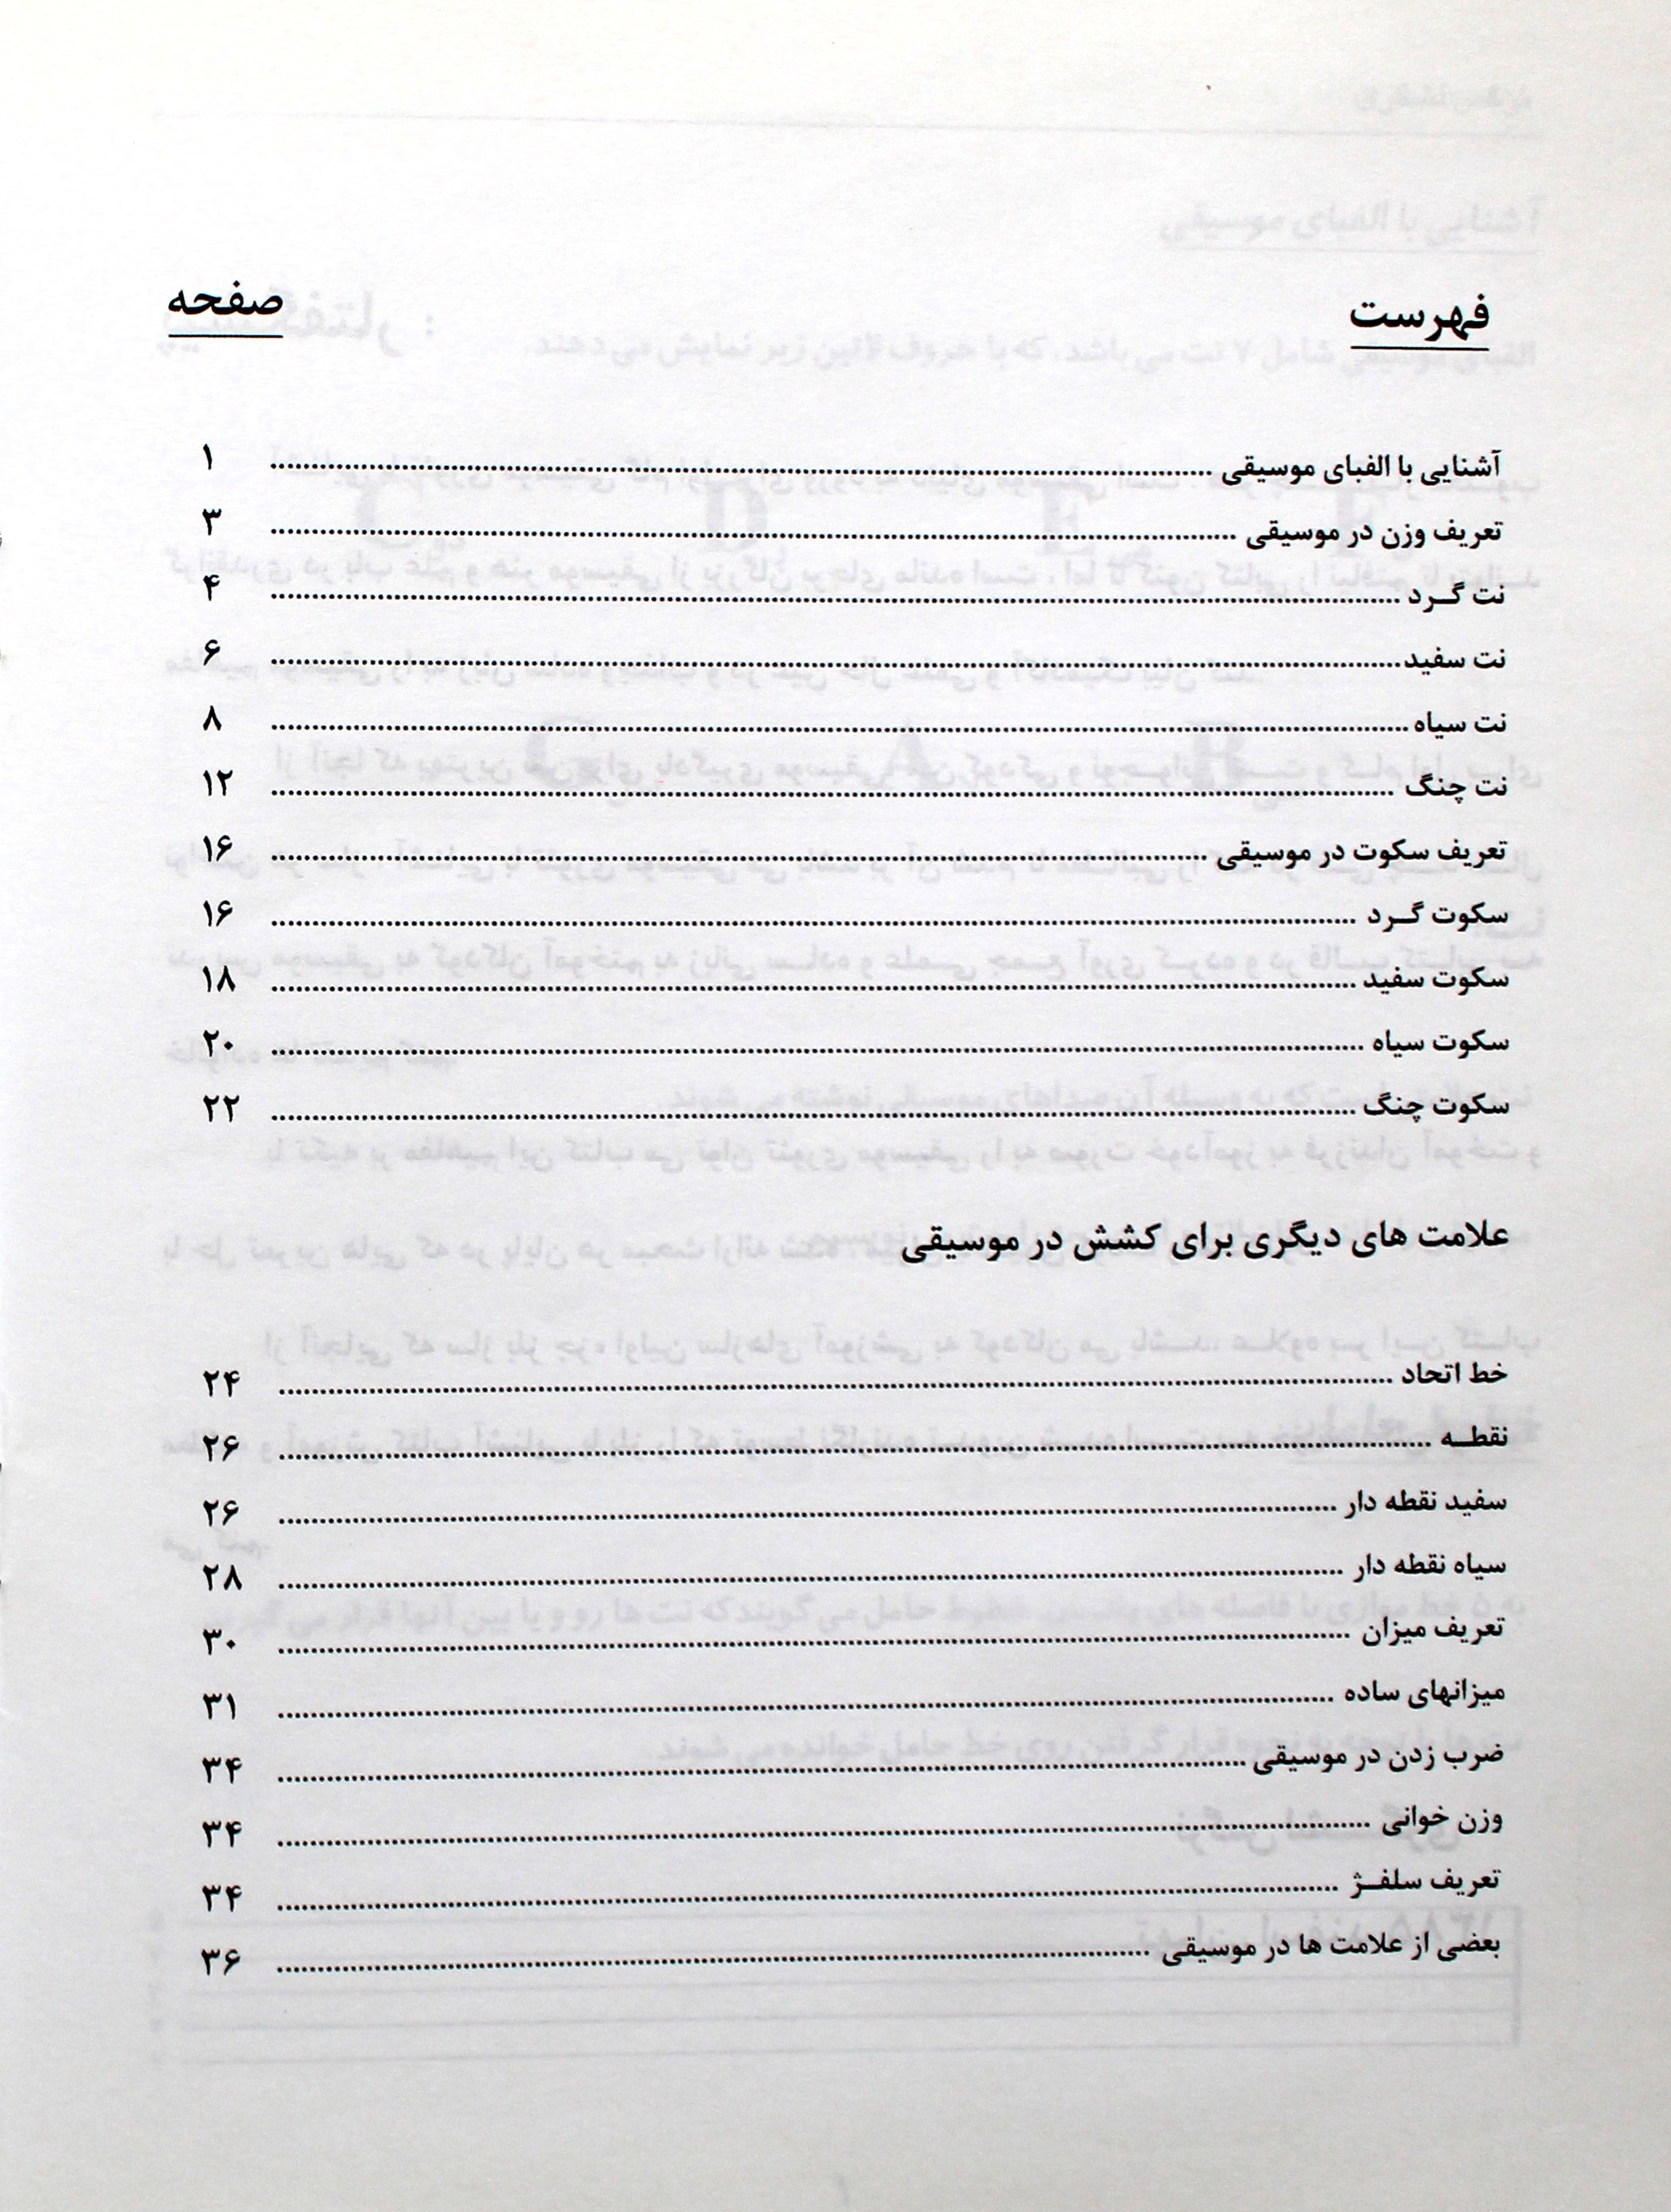 فهرست صفحه
آشنایی با الفبای موسیقی ........ ۱
تعریف وزن در موسیقی ........ ۳
نت گــرد ........ ۴
نت سفید ........ ۶
نت سیاه ........ ۸
نت چنگ ........ ۱۲
تعریف سکوت در موسیقی ........ ۱۶
سکوت گــرد ........ ۱۶
سکوت سفید ........ ۱۸
سکوت سیاه ........ ۲۰
سکوت چنگ ........ ۲۲
علامت های دیگری برای کشش در موسیقی
خط اتحاد ........ ۲۴
نقطــه ........ ۲۶
سفید نقطه دار ........ ۲۶
سیاه نقطه دار ........ ۲۸
تعریف میزان ........ ۳۰
میزانهای ساده ........ ۳۱
ضرب زدن در موسیقی ........ ۳۴
وزن خوانی ........ ۳۴
تعریف سلفــژ ........ ۳۴
بعضی از علامت ها در موسیقی ........ ۳۶